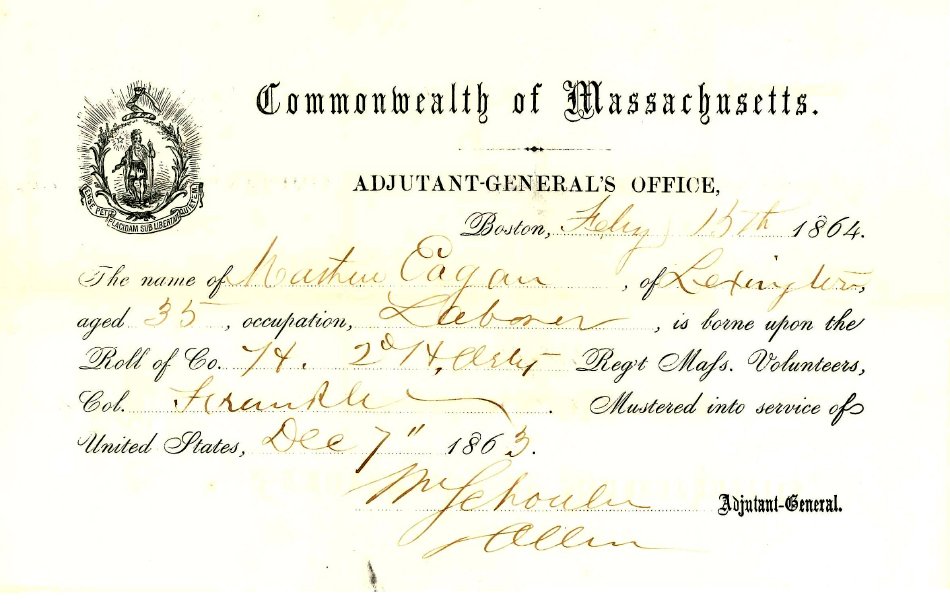 Commonwealth of Massachusetts.
ADJUTANT-GENERAL'S OFFICE,
ENSE PETIT PLACIDAM SUB LIBERTATE QUIETEM
Boston, Feby 15th 1864.
The name of Matthew Eagan, of Lexington,
aged 35, occupation, Laborer, is borne upon the
Roll of Co. H. 2d H. Arty Reg't Mass. Volunteers,
Col. Frankle. Mustered into service of
United States, Dec 7" 1863.
Wm Schouler Adjutant-General.